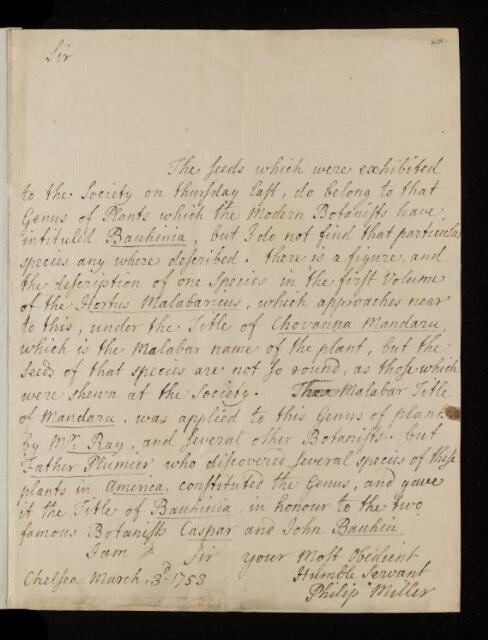 Sir
The seeds which were exhibited
to the Society on thursday last, do belong to that
Genus of Plants which the Modern Botanists have
intituled Bauhinia, but I do not find that particular
species any where described. there is a figure, and
the description of one Species in the first Volume
of the Hortus Malabaricus, which approaches near
to this, under the Title of Chovanna Mandaru,
which is the Malabar name of the plant, but the
seeds of that species are not so round, as those which
were shewn at the Society. Malabar Title
of Mandaru, was applied to this Genus of plants
by Mr. Ray, and several other Botanists. but
Father Plumier who discovered several species of these
plants in America, constituted the Genus, and gave
it the Title of Bauhinia, in honour to the two
famous Botanists Caspar and John Bauhin
I am Sir your Most Obedient
Humble Servant
Chelsea March 3d. 1753
Philip Miller